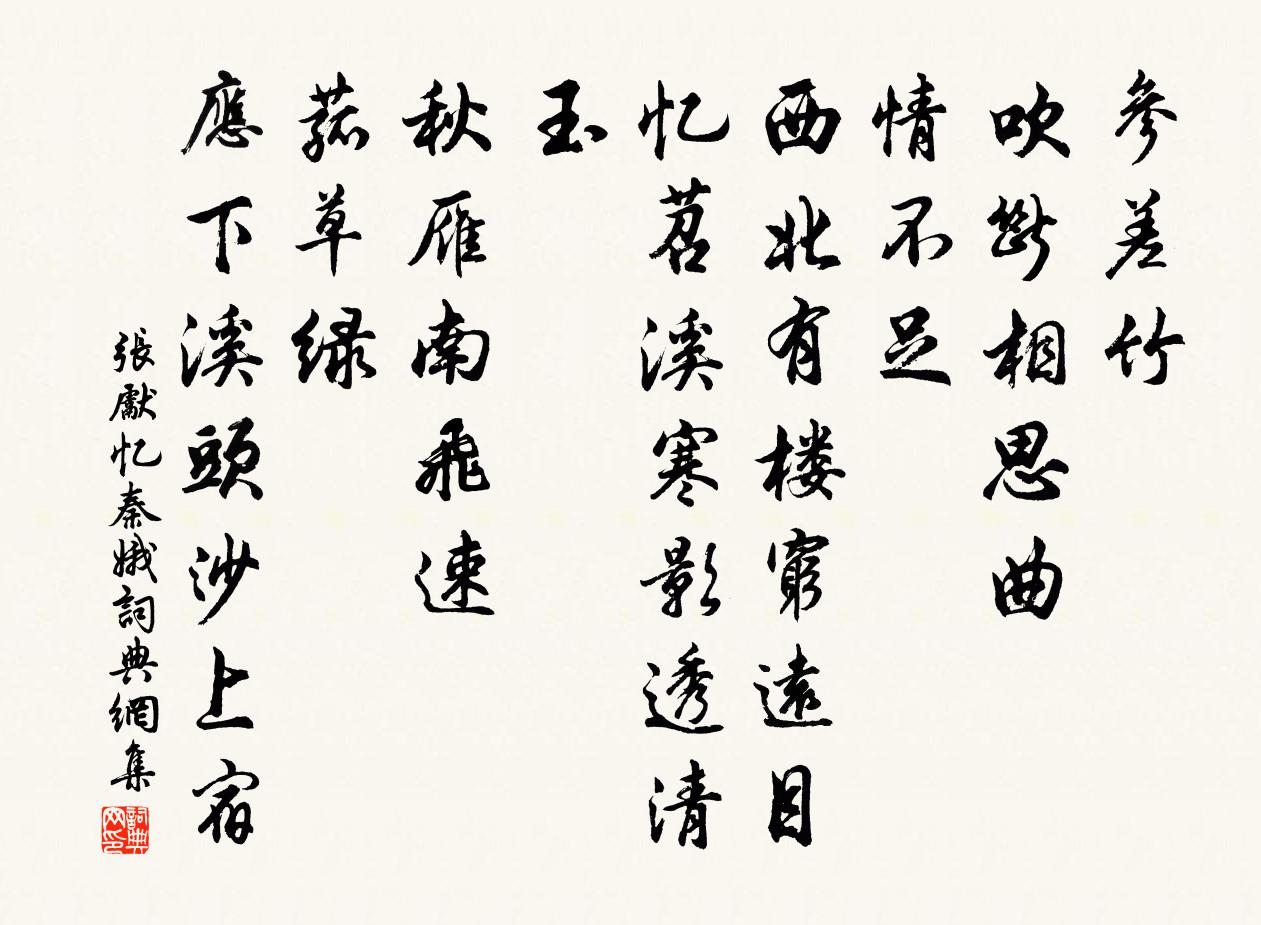 參差竹
吹斷相思曲
情不足
西北有楼窮遠目
忆苕溪寒影透清
玉
秋雁南飛速
菰草绿
應下溪頭沙上宿
張先獻忆秦娥詞典網集
詞典网印